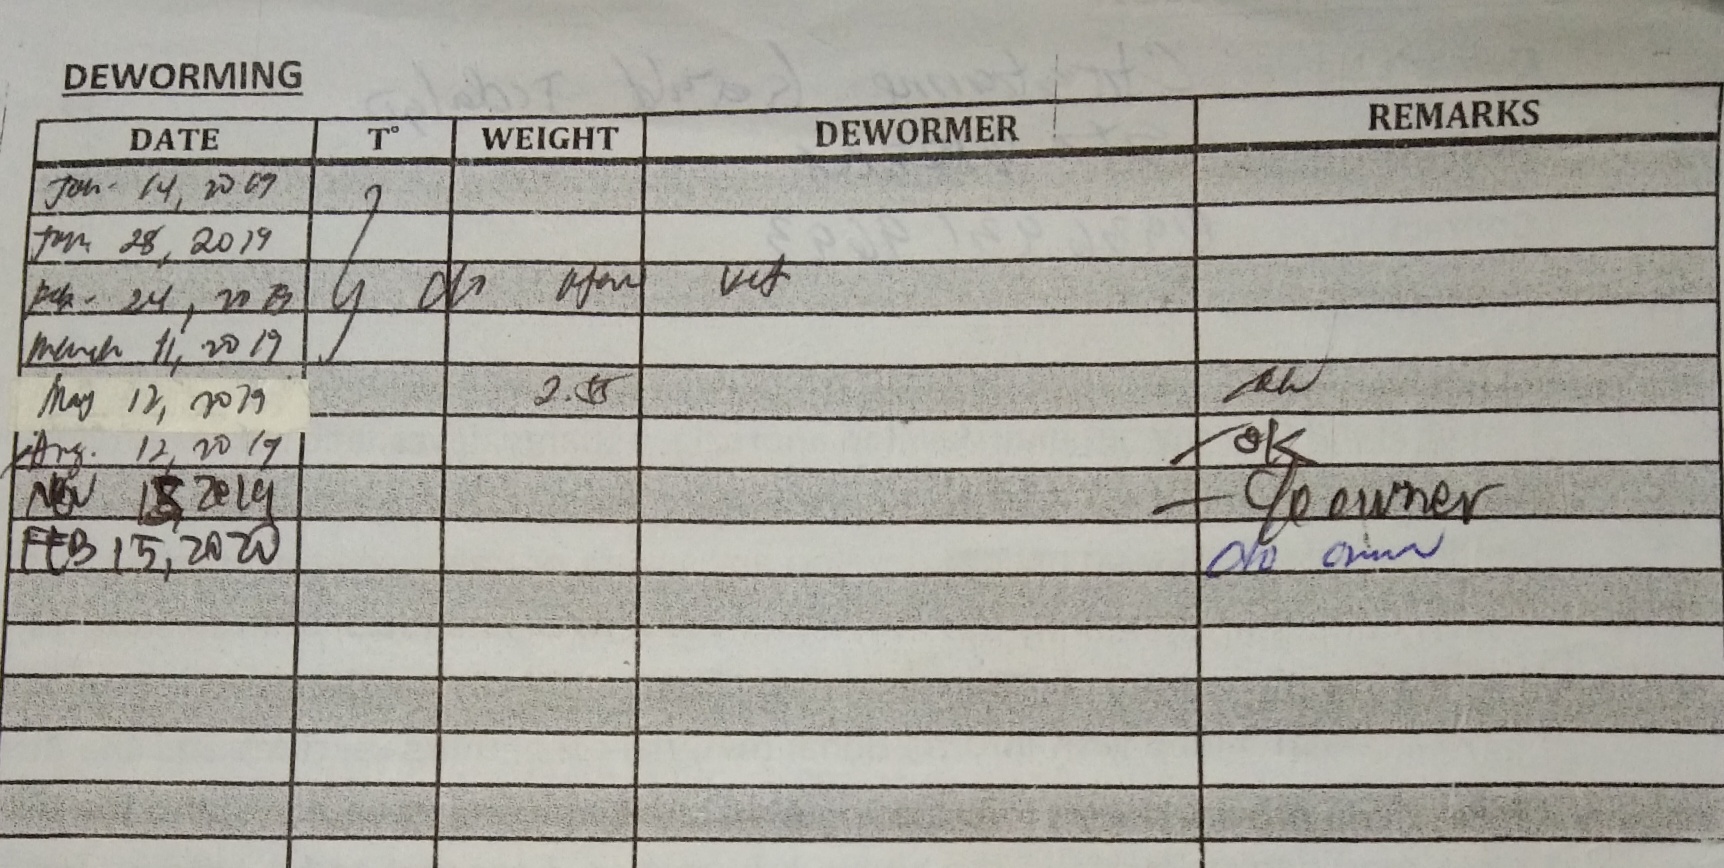 DEWORMING
DATE T° WEIGHT DEWORMER REMARKS
Jan. 14, 2019
Jan. 28, 2019
Feb. 24, 2019
March 11, 2019
May 12, 2019
Aug. 12, 2019 OK
NOV 15, 2019 c/o owner
FEB 15, 2020 c/o owner